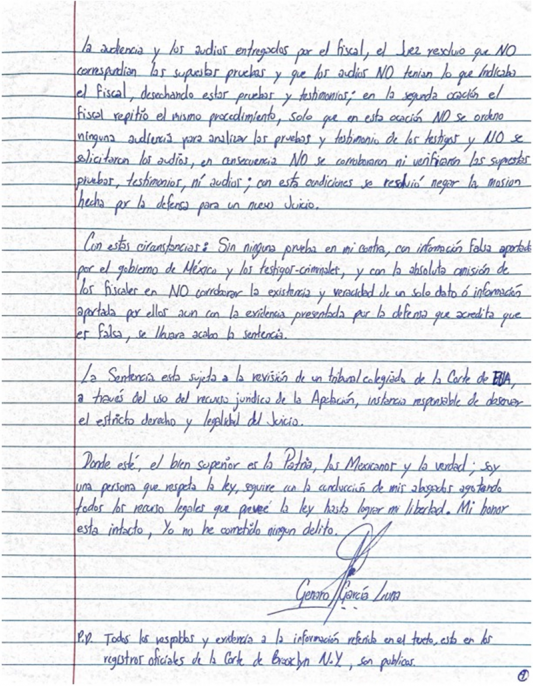 la audiencia y los audios entregados por el fiscal, el Juez resolvio que NO
correspondian las supuestas pruebas y que los audios NO tenian lo que Indicaba
el Fiscal, desechando estas pruebas y testimonios; en la segunda ocación el
fiscal repitió el mismo procedimiento, solo que en esta ocación NO se ordeno
ninguna audiencia para analizar las pruebas y testimonio de los testigos y NO se
solicitaron los audios, en consecuencia NO se corroboraron ni verificaron las supuestas
pruebas, testimonios, ni audios; con esta condiciones se resolvió negar la mosion
hecha por la defensa para un nuevo Juicio.
Con estas circunstancias: Sin ninguna prueba en mi contra, con información Falsa aportada
por el gobierno de México y los testigos-criminales, y con la absoluta omisión de
los fiscales en NO corroborar la existencia y veracidad de un solo dato ó información
aportada por ellos aun con la evidencia presentada por la defensa que acredita que
es Falsa, se llevara acabo la sentencia.
La Sentencia esta sujeta a la revisión de un tribunal colegiado de la Corte de EUA,
a través del uso del recurso juridico de la Apelación, instancia responsable de
el estricto derecho y legalidad del Juicio.
Donde esté, el bien superior es la Patria, los Mexicanos y la verdad; soy
una persona que respeta la ley, seguire con la conducción de mis abogados agotando
todos los recurso legales que preveé la ley hasta lograr mi libertad. Mi honor
esta intacto, Yo no he cometido ningun delito.
Genaro García Luna
P.D. Todos los respaldos y evidencia a la información referida en el texto, esta en los
registros oficiales de la Corte de Brooklyn N.Y., son publicos.